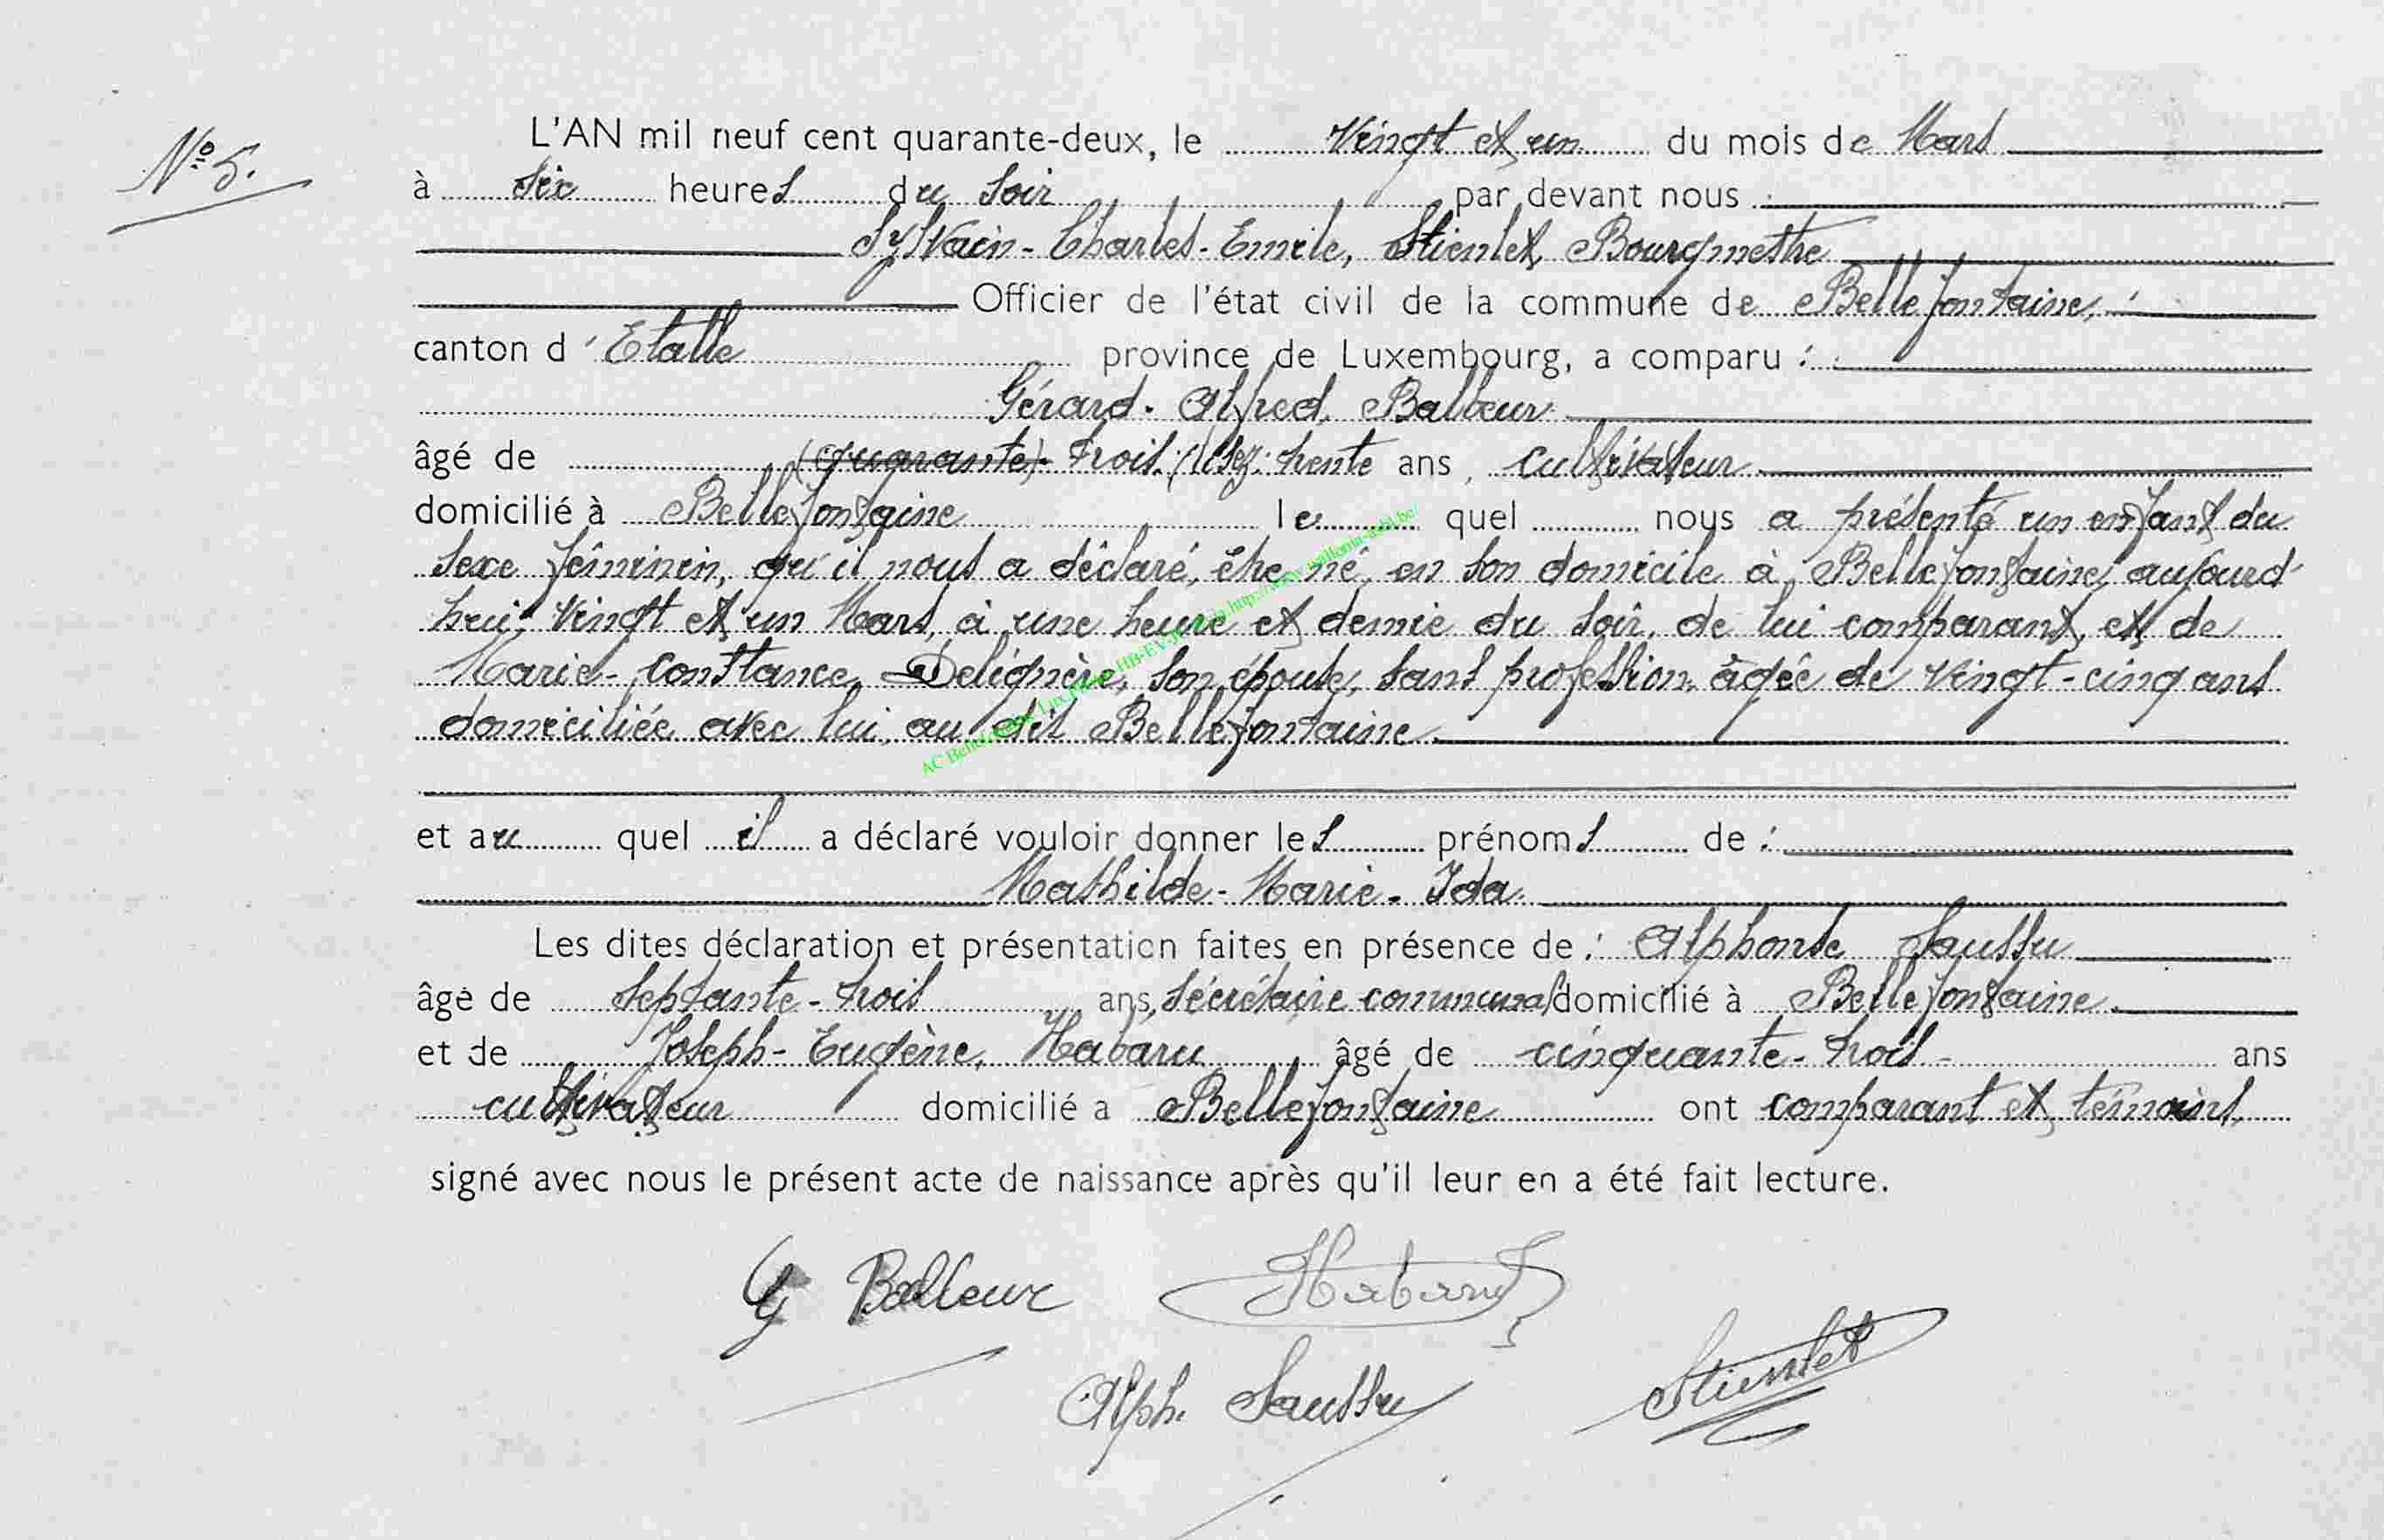 N° 5.
L'AN mil neuf cent quarante-deux, le Vingt et un du mois de Mars
à six heures du soir par devant nous :
Sylvain-Charles-Emile, Stienlet, Bourgmestre
Officier de l'état civil de la commune de Bellefontaine, :
canton d'Etalle province de Luxembourg, a comparu :
Gérard-Alfred, Balbeur
âgé de (quarante)-trois, (lisez: trente ans, cultivateur
domicilié à Bellefontaine lequel nous a présenté un enfant du
sexe féminin, qu'il nous a déclaré, être né, en son domicile à Bellefontaine, aujourd'
hui, Vingt et un Mars, à une heure et demie du soir, de lui comparant, et de
Marie-Constance, Delignère, son épouse, sans profession, âgée de Vingt-cinq ans
domiciliée avec lui, au dit Bellefontaine.
et auquel il a déclaré vouloir donner les prénoms de :
Mathilde-Marie-Ida.
Les dites déclaration et présentation faites en présence de : Alphonse Saussu
âgé de septante-trois ans, secrétaire communal domicilié à Bellefontaine.
et de Joseph-Eugène, Habaru âgé de cinquante-trois ans
cultivateur domicilié a Bellefontaine ont comparant et témoins,
signé avec nous le présent acte de naissance après qu'il leur en a été fait lecture.
G Balbeur Habaru
Alph. Saussu Stienlet